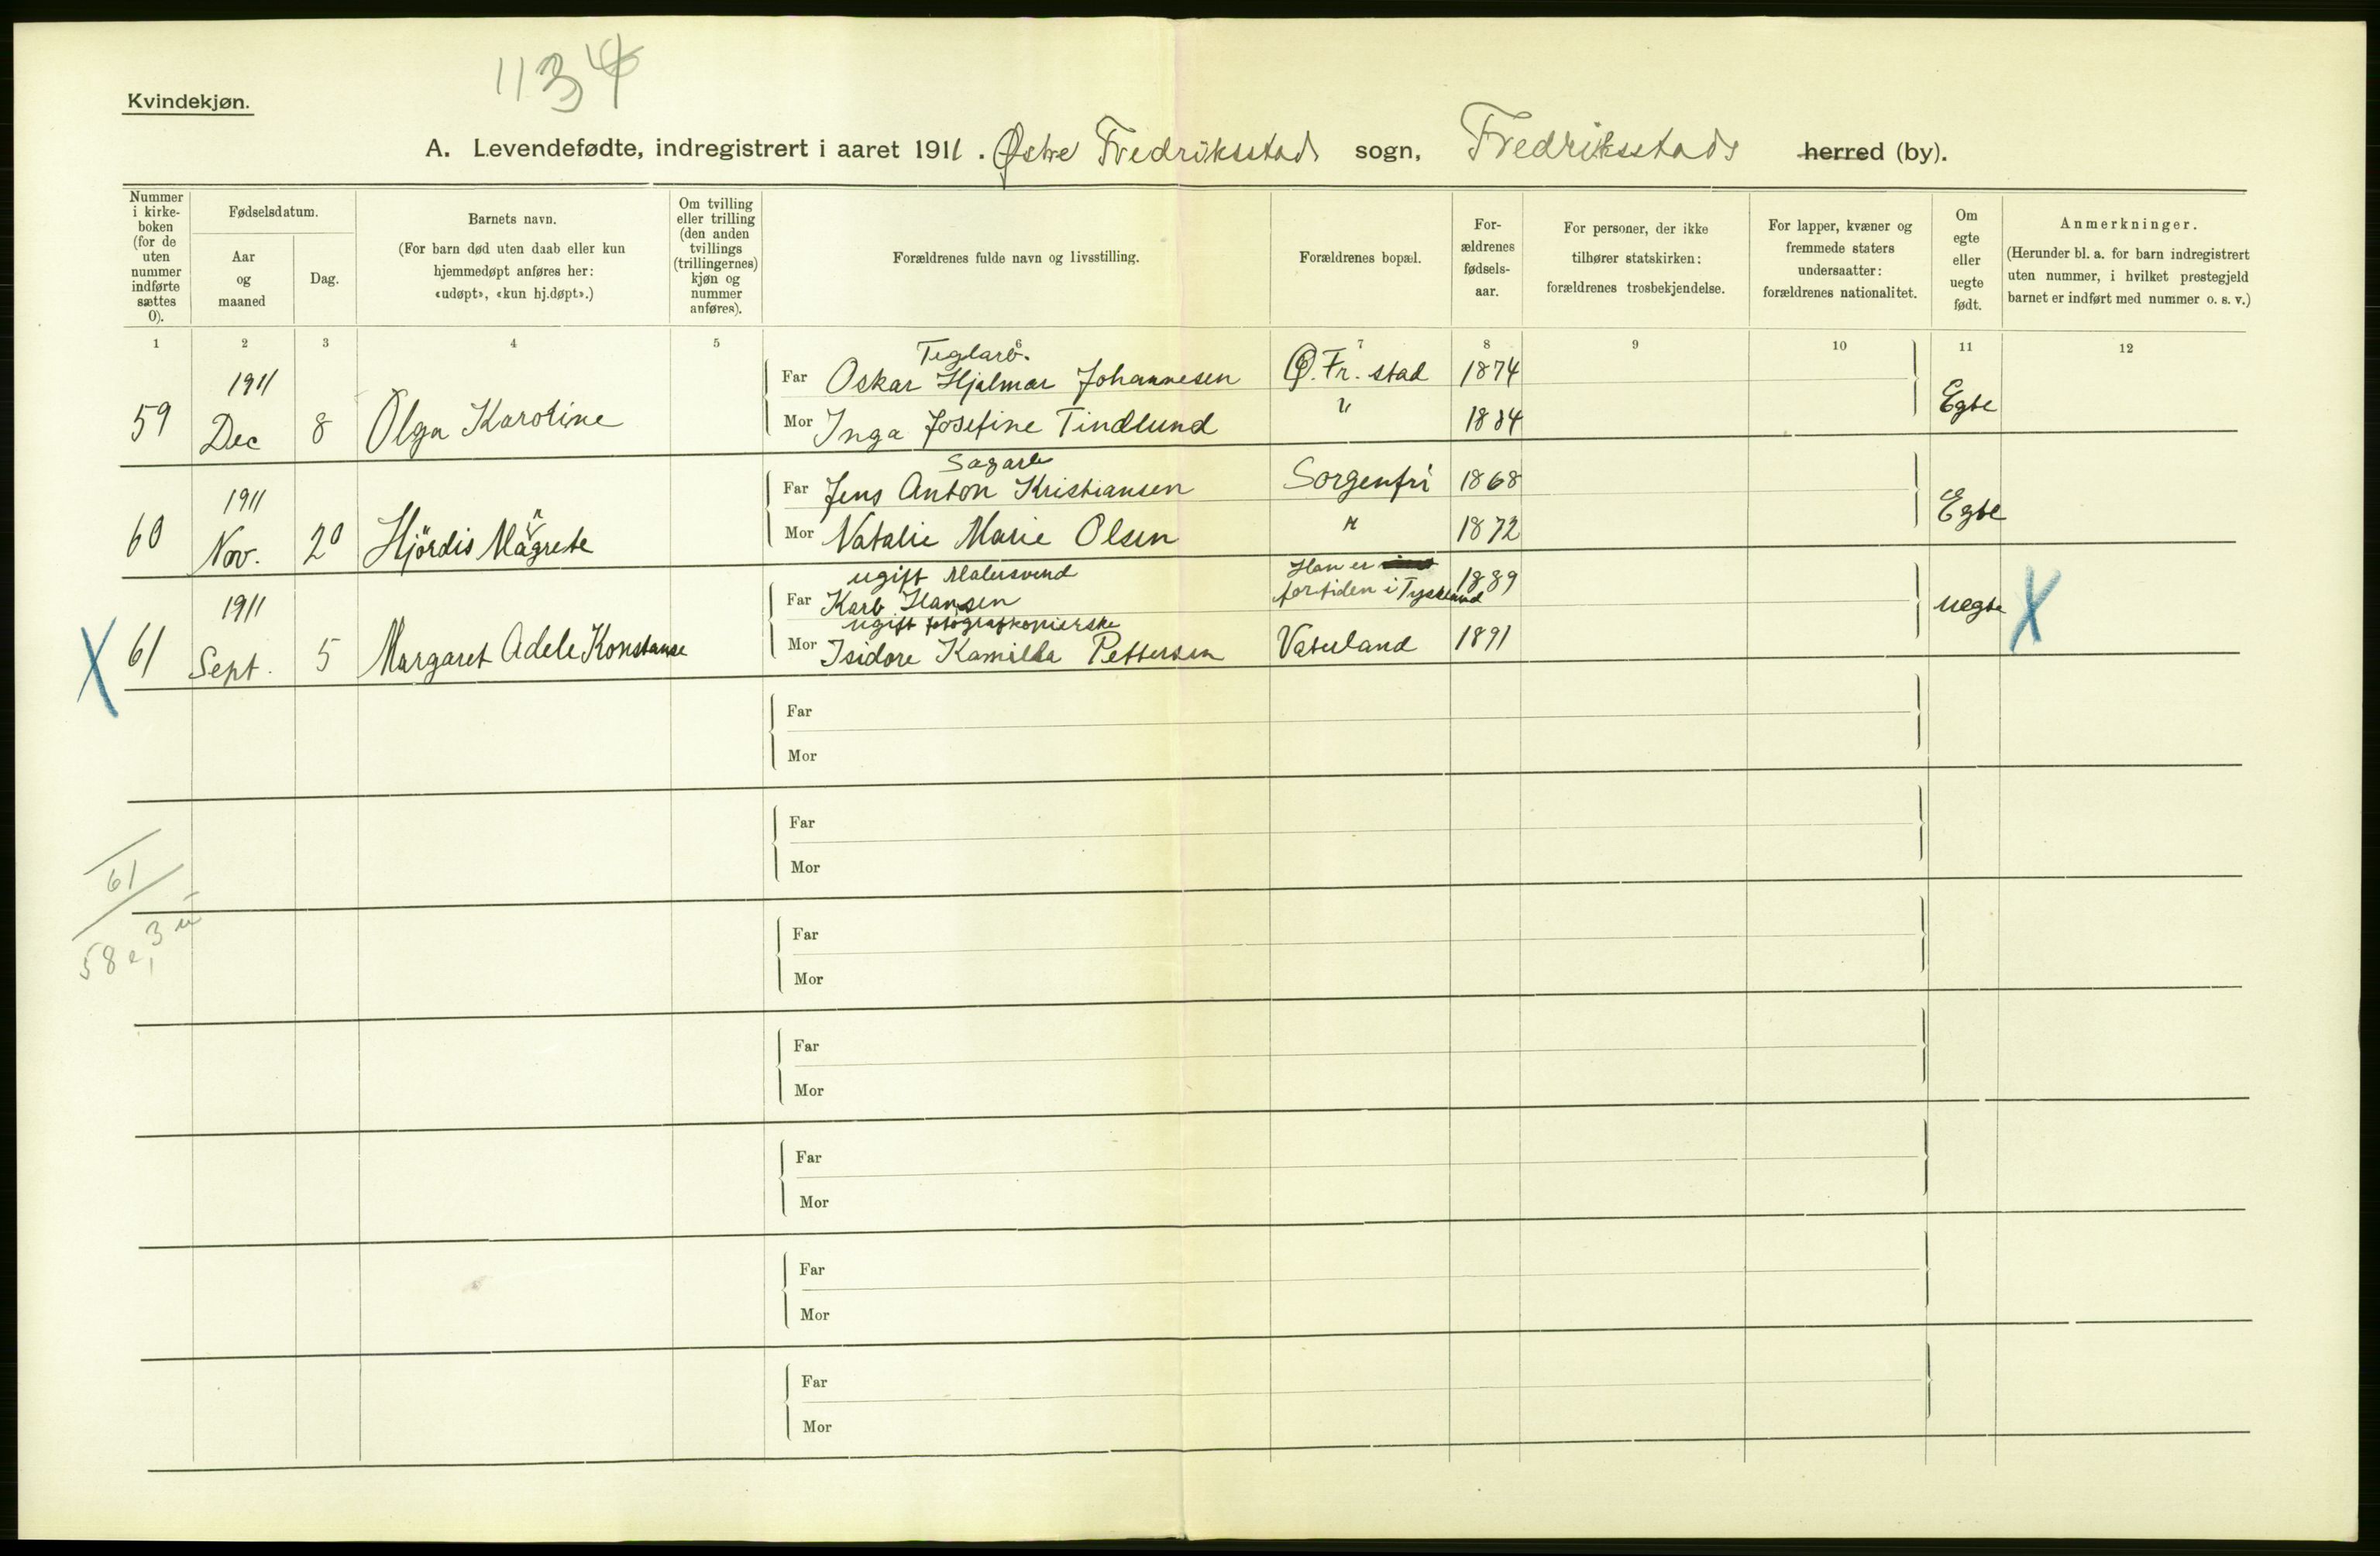 1134
Kvindekjøn.
A. Levendefødte, indregistrert i aaret 1911. Østre Fredriksstad sogn, Fredriksstads herred (by).
Nummer i kirke-boken (for de uten nummer indførte sættes 0).
Fødselsdatum.
Aar og maaned
Dag.
Barnets navn.
(For barn død uten daab eller kun hjemmedøpt anføres her: «udøpt», «kun hj.døpt».)
Om tvilling eller trilling (den anden tvillings (trillingernes) kjøn og nummer anføres).
Forældrenes fulde navn og livsstilling.
Forældrenes bopæl.
For-ældrenes fødsels-aar.
For personer, der ikke tilhører statskirken: forældrenes trosbekjendelse.
For lapper, kvæner og fremmede staters undersaatter: forældrenes nationalitet.
Om egte eller uegte født.
Anmerkninger.
(Herunder bl. a. for barn indregistrert uten nummer, i hvilket prestegjeld barnet er indført med nummer o. s. v.)
1 2 3 4 5 6 7 8 9 10 11 12
Teglarb.
59 1911 Dec 8 Olga Karoline Far Oskar Hjalmar Johannesen Ø. Fr. stad 1874 Egte
Mor Inga Josefine Tindlund " 1884
Sagarb
60 1911 Nov. 20 Hjördis Margrete Far Jens Anton Kristiansen Sorgenfri 1868 Egte
Mor Natalie Marie Olsen " 1872
ugift Malersvend Han er
X 61 1911 Sept. 5 Margaret Adele Konstanse Far Karl Hansen fortiden i Tyskland 1889 uegte X
ugift fotografkopierske
Mor Isidore Kamilla Pettersen Vaterland 1891
Far
Mor
Far
Mor
61
58 e, 3 u
Far
Mor
Far
Mor
Far
Mor
Far
Mor
Far
Mor